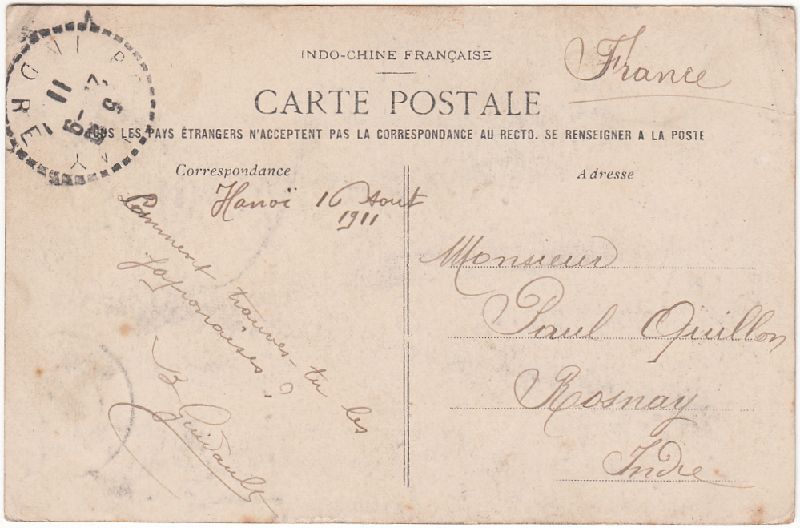 INDO-CHINE FRANÇAISE
France
CARTE POSTALE
TOUS LES PAYS ÉTRANGERS N'ACCEPTENT PAS LA CORRESPONDANCE AU RECTO. SE RENSEIGNER A LA POSTE
Correspondance
Hanoï 16 Aout
1911
Comment trouves-tu les
japonaises?
B Guidault
Adresse
Monsieur
Paul Quillon
Rosnay
Indre